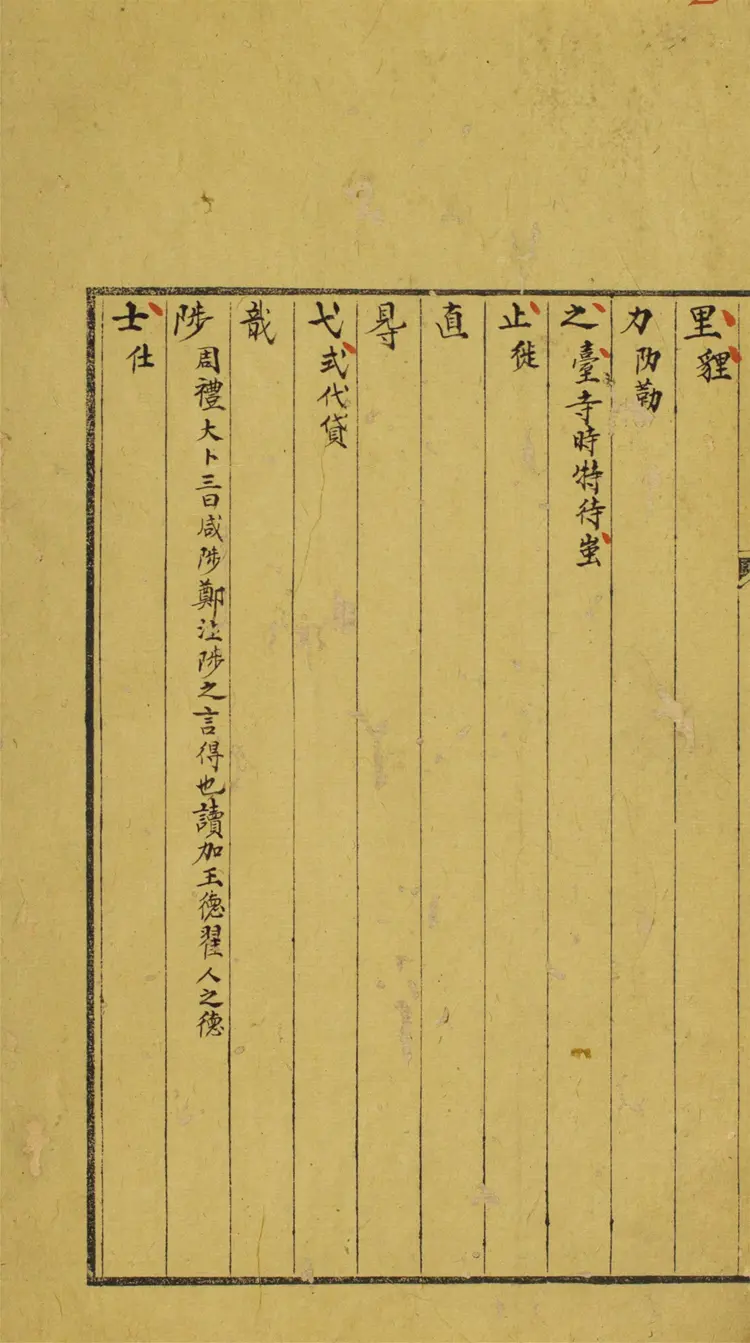 里貍
力阞勒
之臺寺時特待蚩
止徙
直
㝵
弋式代貸
戠
陟周禮大卜三曰咸陟鄭注陟之言得也讀如王德翟人之德
士仕